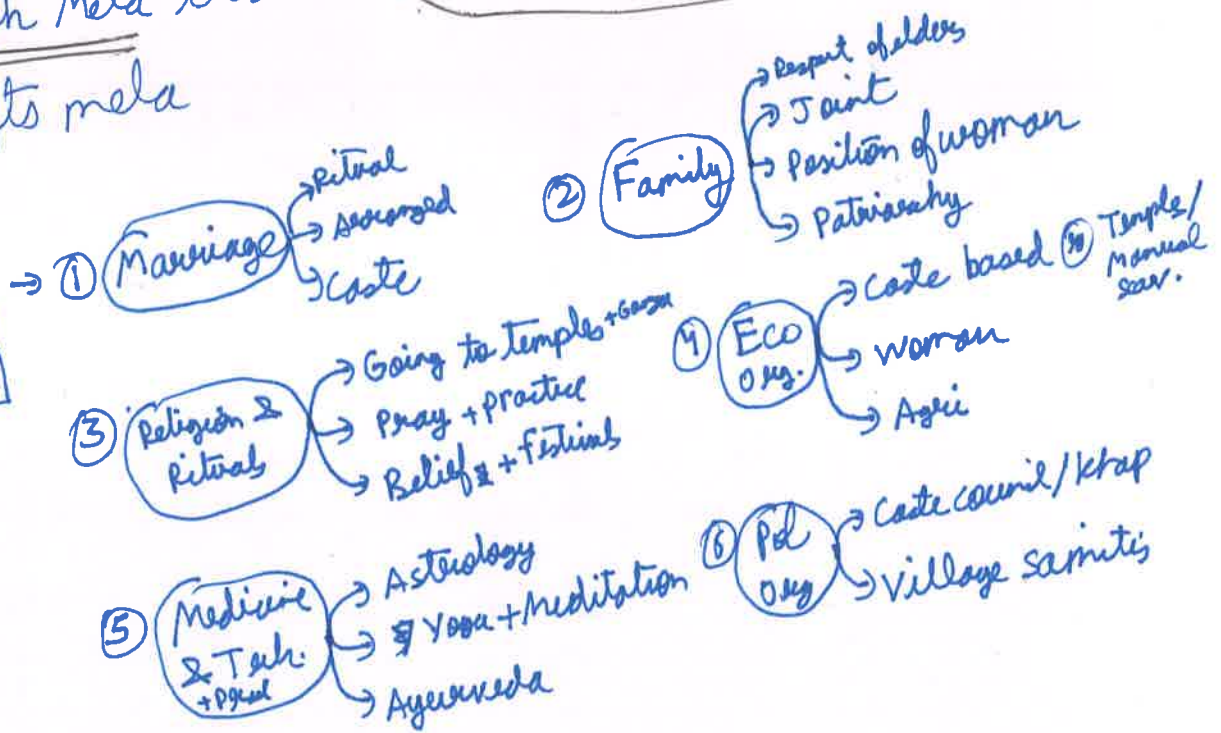 Mela
ts mela
→ ① Marriage
→ Ritual
→ Arranged
→ Caste
② Family
→ Respect of elders
→ Joint
→ Position of woman
→ Patriarchy
③ Religion &
Rituals
→ Going to temples
→ Pray + practice
→ Beliefs + festivals
④ Eco
Org.
→ Caste based Temple/
Manual
scav.
→ Woman
→ Agri
⑤ Medicine
& Tech.
→ Astrology
→ Yoga + Meditation
→ Ayurveda
⑥ Pol
Org
→ Caste council/Khap
→ Village samitis